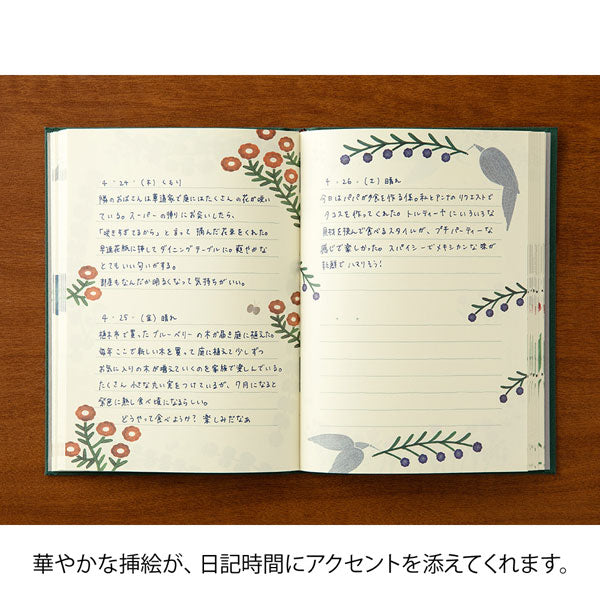 4・24・(木) くもり
隣のおばさんは華道家で庭にはたくさんの花が咲い
ている。スーパーの帰りにお会いしたら、
「咲きすぎてるから」と言って摘んだ花束をくれた。
早速花瓶に挿してダイニングテーブルに。華やかな
とてもいい匂いがする。
部屋もなんだか明るくなって気持ちがいい。
4・25・(金) 晴れ
植木市で買ったブルーベリーの木が届き庭に植えた。
毎年ここで新しい木を買って庭に植えて少しずつ
お気に入りの木が増えていくのを家族で楽しんでいる。
たくさん小さな丸い実をつけているが、7月になると
紫色に熟し食べ頃になるらしい。
どうやって食べようか? 楽しみだなぁ
4・26・(土) 晴れ
今日はパパが夕食を作る係。私とアンナのリクエストで
タコスを作ってくれた。トルティーヤにいろいろな
具材を挟んで食べるスタイルが、プチパーティーな
感じで楽しかった。スパイシーでメキシカンな味が
新鮮でハマりそう!
華やかな挿絵が、日記時間にアクセントを添えてくれます。